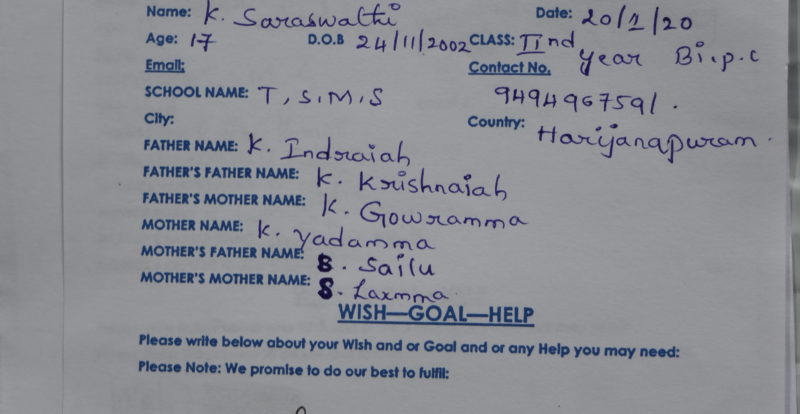 Name: K. Saraswathi Date: 20/1/20
Age: 17 D.O.B 24/11/2002 CLASS: IInd year Bi.p.c
Email: Contact No.
SCHOOL NAME: T.S.M.S 9494967591.
City: Country: Harijanapuram.
FATHER NAME: K. Indraiah
FATHER'S FATHER NAME: K. Krishnaiah
FATHER'S MOTHER NAME: K. Gowramma
MOTHER NAME: K. Yadamma
MOTHER'S FATHER NAME: S. Sailu
MOTHER'S MOTHER NAME: S. Laxmma
WISH—GOAL—HELP
Please write below about your Wish and or Goal and or any Help you may need:
Please Note: We promise to do our best to fulfil: